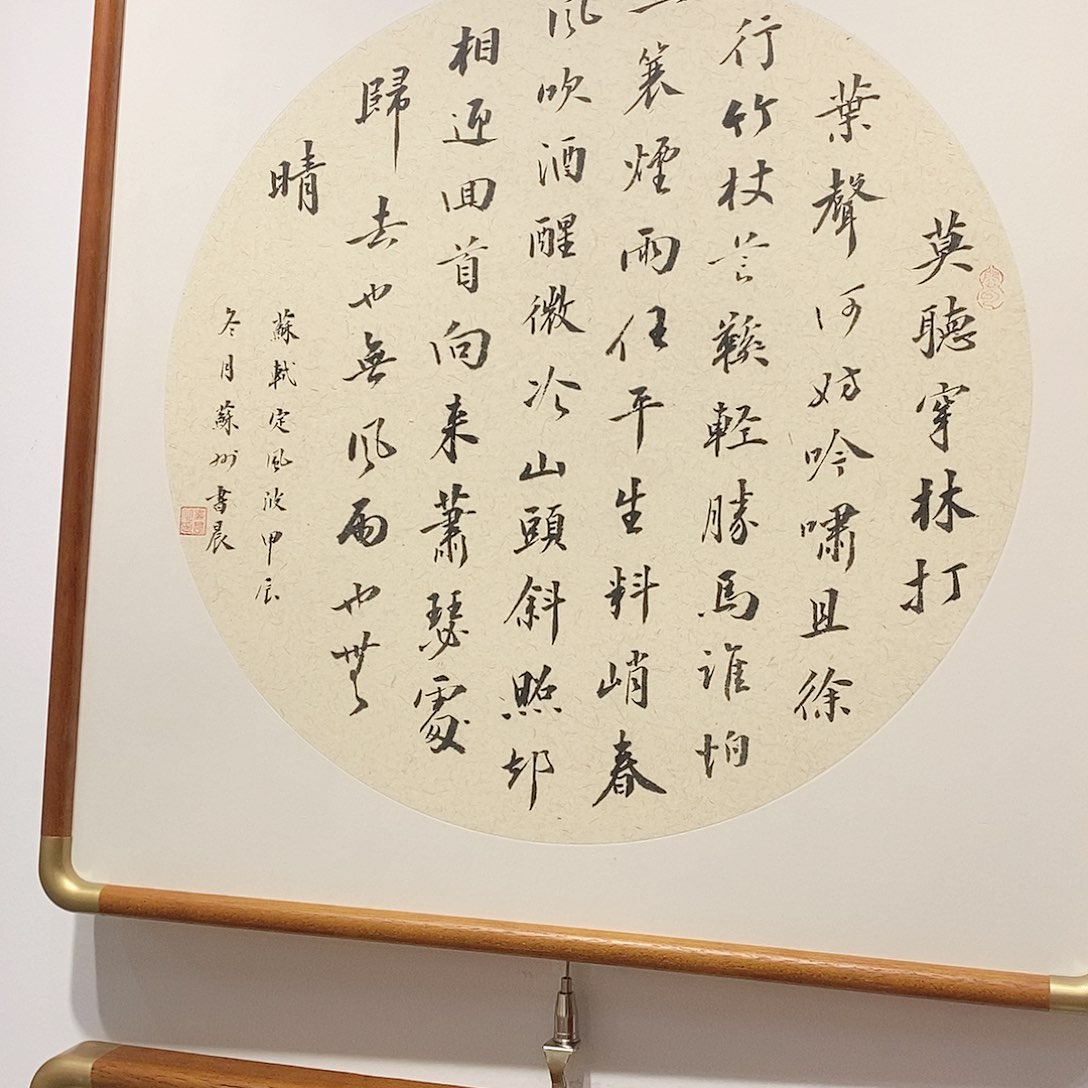 莫聽穿林打
葉聲何妨吟嘯且徐
行竹杖芒鞋軽勝馬誰怕
一蓑煙雨任平生料峭春
風吹酒醒微冷山頭斜照却
相迎回首向来蕭瑟處
歸去也無風雨也無
晴
蘇軾定風波甲辰
冬月蘇州書晨